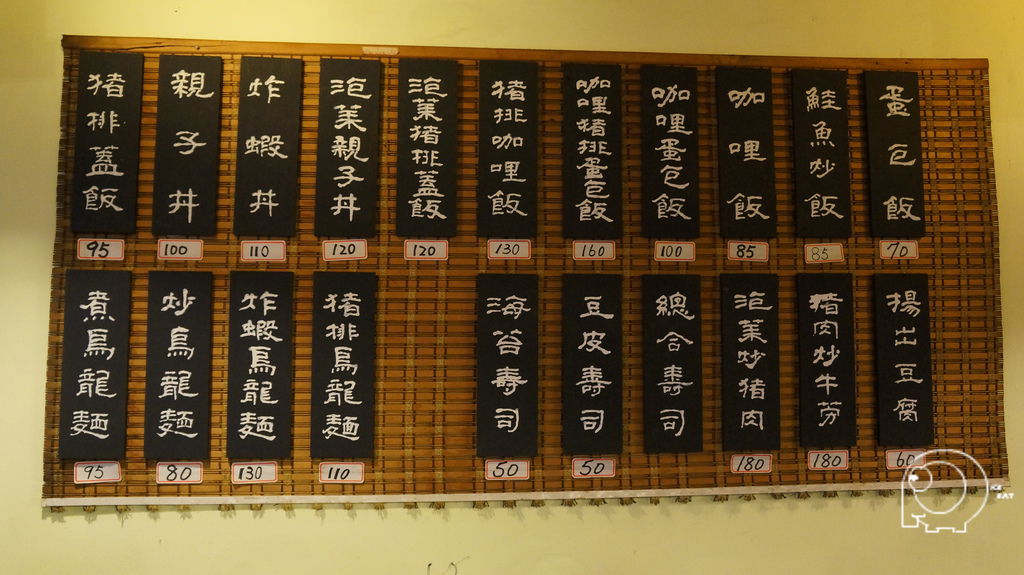 蛋包飯
70
鮭魚炒飯
85
咖哩飯
85
咖哩蛋包飯
100
咖哩猪排蛋包飯
160
猪排咖哩飯
130
泡菜猪排蓋飯
120
泡菜親子丼
120
炸蝦丼
110
親子丼
100
猪排蓋飯
95
揚出豆腐
60
猪肉炒牛蒡
180
泡菜炒猪肉
180
總合壽司
豆皮壽司
50
海苔壽司
50
猪排烏龍麵
110
炸蝦烏龍麵
130
炒烏龍麵
80
煮烏龍麵
95